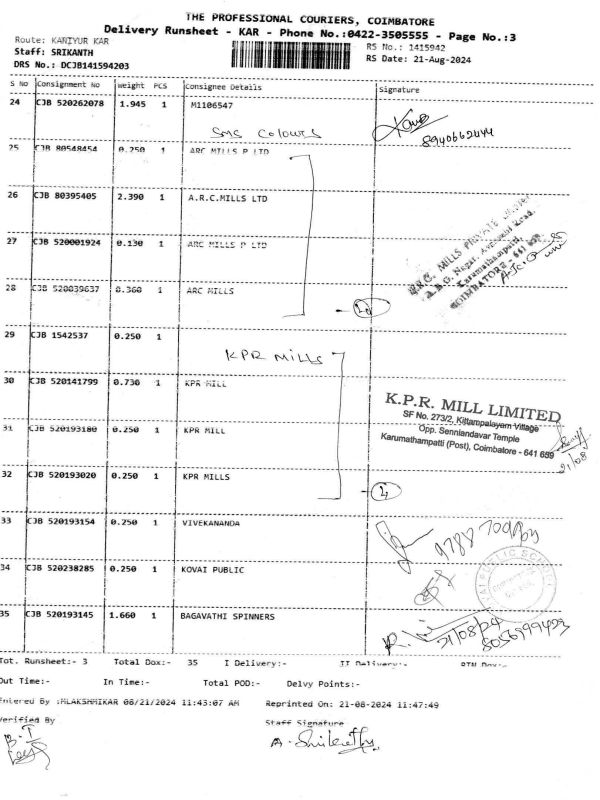 THE PROFESSIONAL COURIERS, COIMBATORE
Delivery Runsheet - KAR - Phone No.:0422-3505555 - Page No.:3
Route: KANIYUR KAR
RS No.: 1415942
Staff: SRIKANTH
RS Date: 21-Aug-2024
DRS No.: DCJB141594203
S No Consignment No Weight PCS Consignee Details Signature
24 CJB 520262078 1.945 1 M1106547
SMS Colours
8940662444
25 CJB 80548454 0.250 1 ARC MILLS P LTD
26 CJB 80395405 2.390 1 A.R.C.MILLS LTD
27 CJB 520001924 0.130 1 ARC MILLS P LTD
COIMBATORE - 641 659
28 CJB 520039637 0.360 1 ARC MILLS
29 CJB 1542537 0.250 1
KPR Mills
30 CJB 520141799 0.730 1 KPR MILL
K.P.R. MILL LIMITED
SF No. 273/2, Kittampalayam Village
Opp. Senniandavar Temple
Karumathampatti (Post), Coimbatore - 641 659
31 CJB 520193180 0.250 1 KPR MILL
21/08
32 CJB 520193020 0.250 1 KPR MILLS
4
33 CJB 520193154 0.250 1 VIVEKANANDA
34 CJB 520238285 0.250 1 KOVAI PUBLIC
PUBLIC SCHOOL
35 CJB 520193145 1.660 1 BAGAVATHI SPINNERS
21/08/24
8056999423
Tot. Runsheet:- 3 Total Dox:- 35 I Delivery:- II Delivery:- RTN Dox:-
Out Time:- In Time:- Total POD:- Delvy Points:-
Entered By :MLAKSHMIKAR 08/21/2024 11:43:07 AM Reprinted On: 21-08-2024 11:47:49
Verified By
Staff Signature